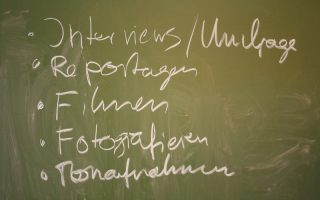 • Interviews/Umfrage
• Reportagen
• Filmen
• Fotografieren
• Tonaufnahmen